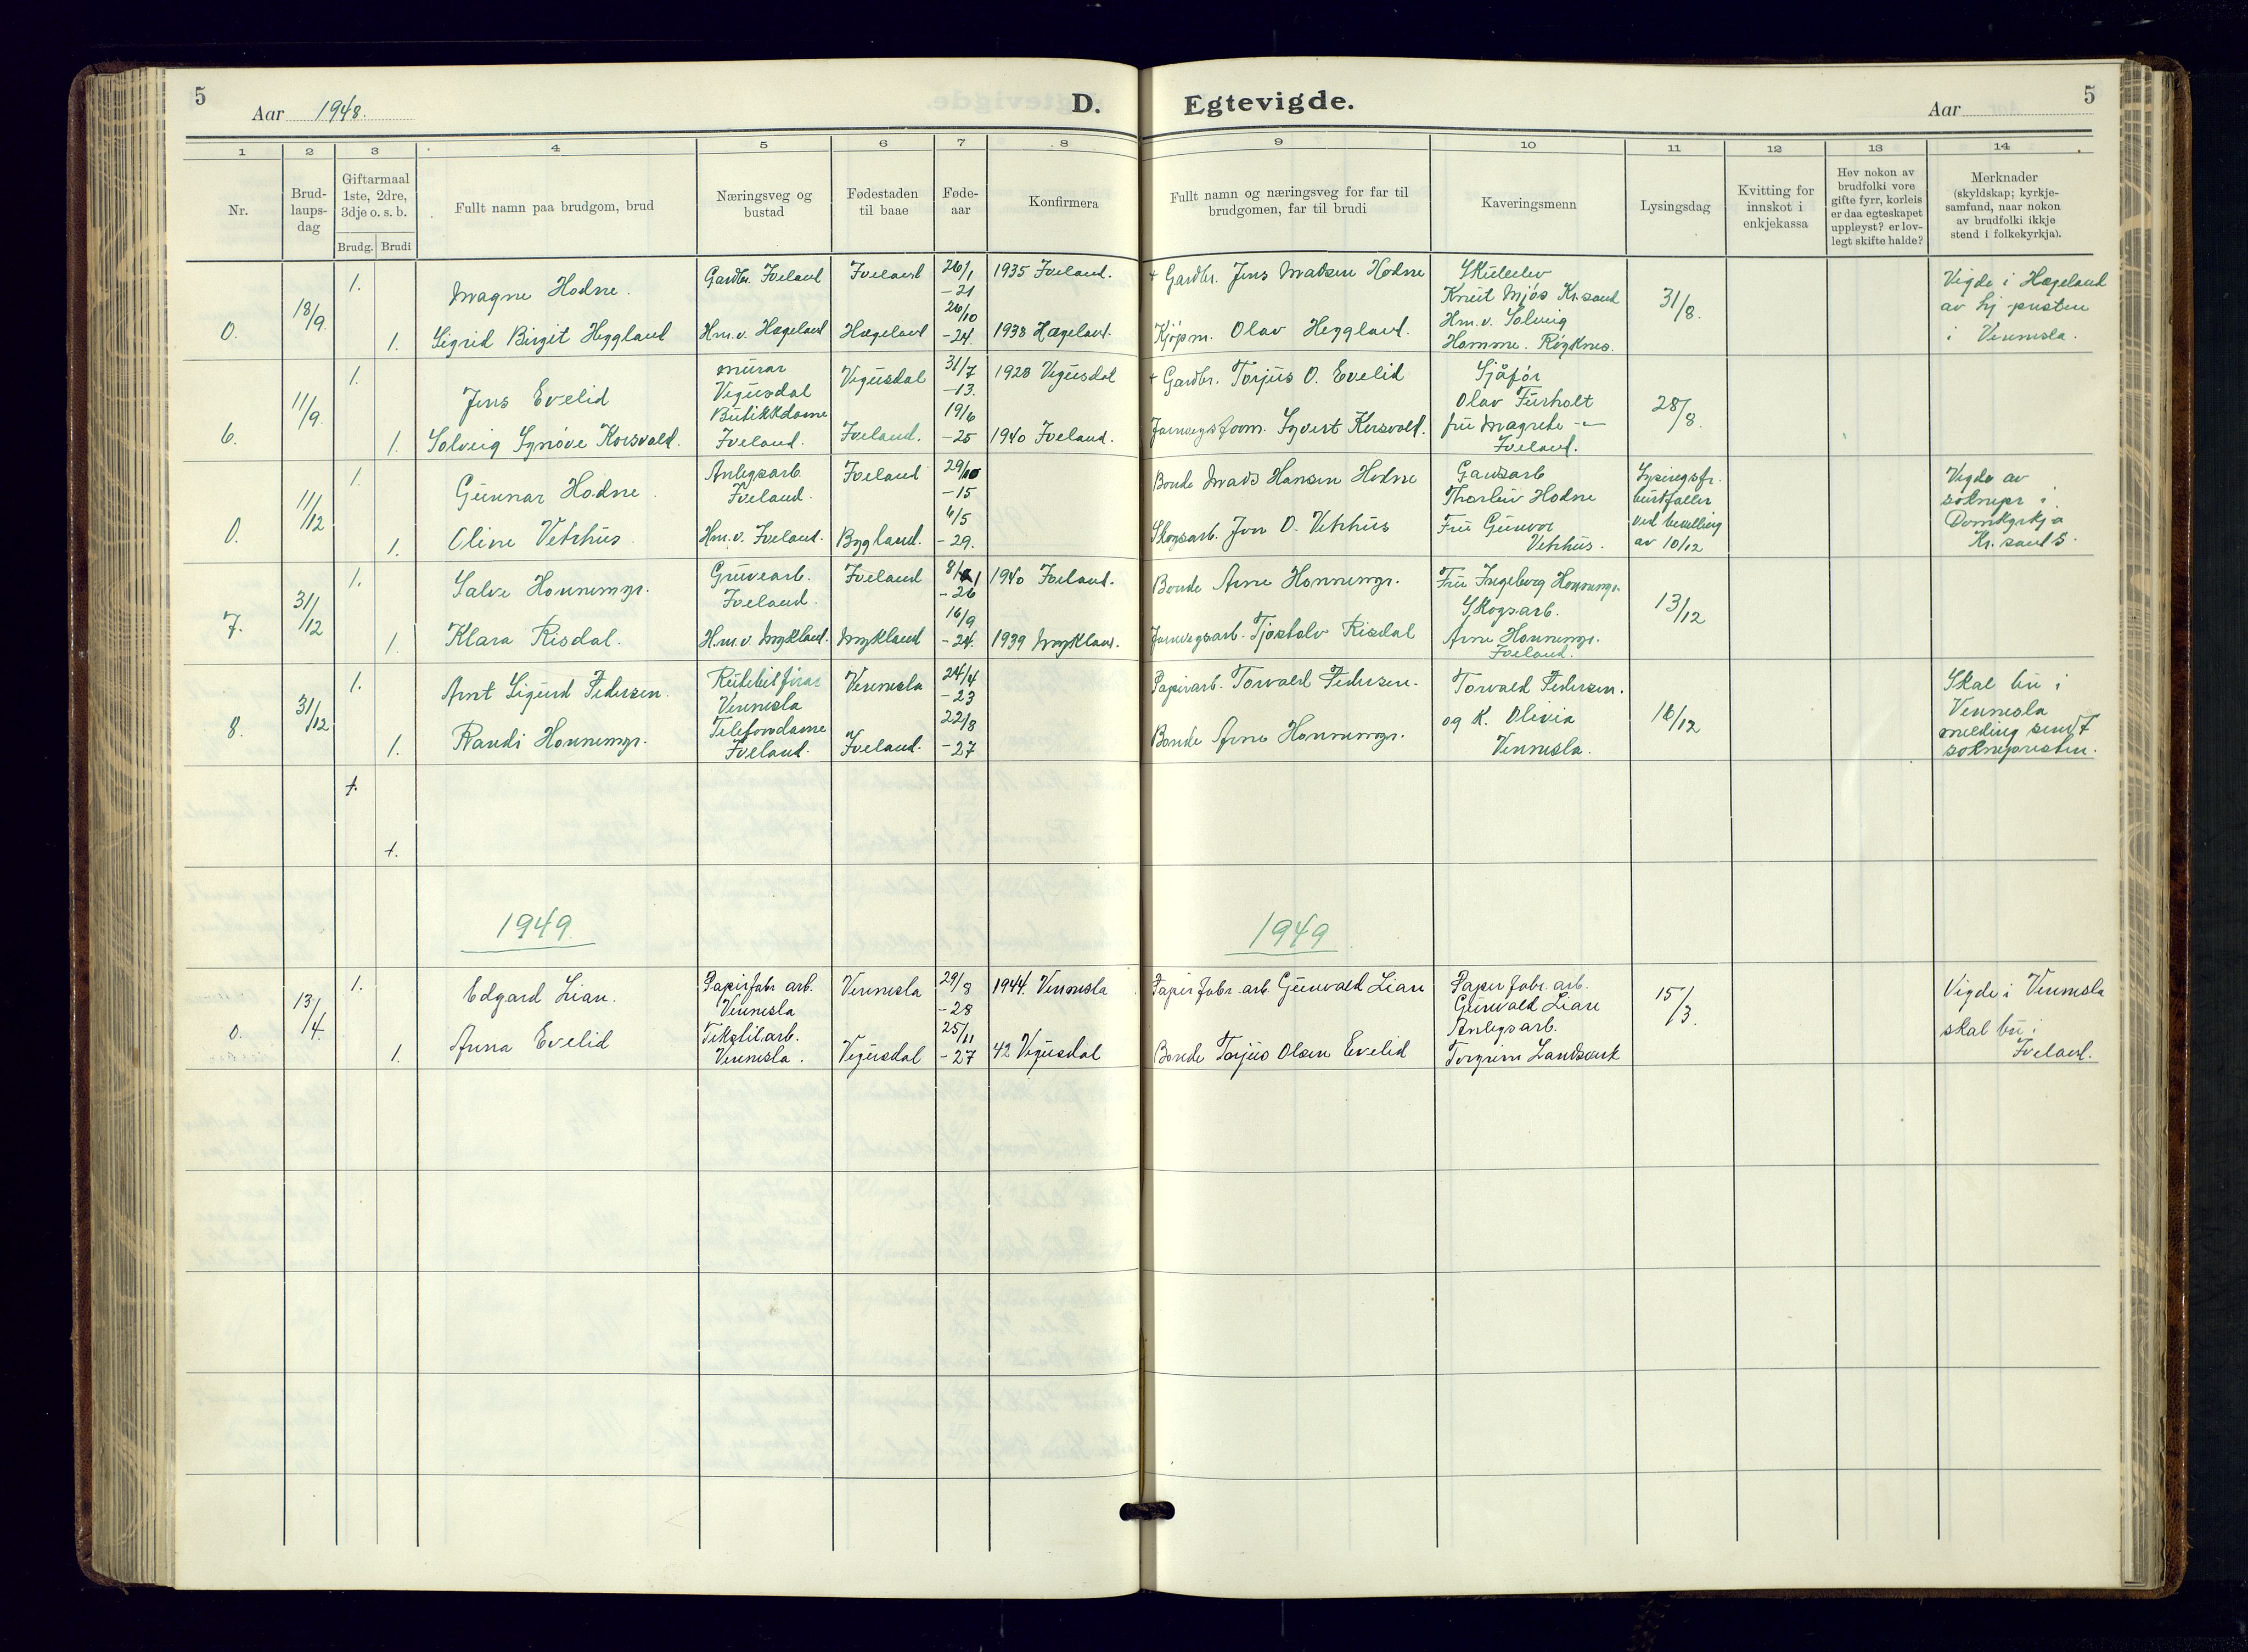 5
Aar 1948.
D. Egtevigde.
Aar
5
1 2 3 4 5 6 7 8 9 10 11 12 13 14
Nr.
Brud-
laups-
dag
Giftarmaal
1ste, 2dre,
3dje o. s. b.
Brudg. Brudi
Fullt namn paa brudgom, brud
Næringsveg og
bustad
Fødestaden
til baae
Føde-
aar
Konfirmera
Fullt namn og næringsveg for far til
brudgomen, far til brudi
Kaveringsmenn
Lysingsdag
Kvitting for
innskot i
enkjekassa
Hev nokon av
brudfolki vore
gifte fyrr, korleis
er daa egteskapet
uppløyst? er lov-
legt skifte halde?
Merknader
(skyldskap; kyrkje-
samfund, naar nokon
av brudfolki ikkje
stend i folkekyrkja).
0.
18/9.
1.
Magne Hodne.
Gardbr. Iveland
Iveland
26/1
-21
1935 Iveland.
+ Gardbr. Jens Madsen Hodne
1.
Sigrid Birgit Heggland
Hm. v. Hægeland
Hægeland
26/10
-24.
1938 Hægeland.
Kjøpm. Olav Heggland.
Knut Mjås Kr.sand
Hm. v. Solveig
Homme. Røyknes.
31/8.
Vigde i Hægeland
av hj.-presten
i Vennesla.
6.
11/9.
1.
Jens Evelid
murar
Vegusdal
Vegusdal
31/7
-13.
1928 Vegusdal
+ Gardbr. Torjus O. Evelid
1.
Solveig Synøve Korsvald.
Butikkdame
Iveland.
Iveland.
19/6
-25
1940 Iveland.
Jarnvegsform. Syvert Korsvald.
Sjåfør
Olav Furholt
fru Magrete -"-
Iveland.
28/8.
0.
11/12
1.
Gunnar Hodne
Anlegsarb.
Iveland.
Iveland
29/10
-15
Bonde Mads Hansen Hodne
1.
Oline Vethus.
Hm. v. Iveland.
Bygland.
6/5
-29.
Skogsarb. Jon O. Vethus
Gardsarb
Thorleiv Hodne
Fru Gunvor
Vethus.
Lysingsfr.
burtfaller
ved bevilling
av 10/12
Vigde av
soknepr i
Domkyrkja
Kr. sand S.
7.
31/12
1.
Salve Honnemyr.
Gruvearb.
Iveland.
Iveland
-26
1940 Iveland.
Bonde Arne Honnemyr.
1.
Klara Risdal.
Hm. v. Mykland.
Mykland
16/9
-24.
1939 Mykland.
Jarnvegsarb. Tjøstolv Risdal
Fru Ingeborg Honnemyr.
Skogsarb.
Arne Honnemyr.
Iveland.
13/12
8.
31/12
1.
Arnt Sigurd Pedersen.
Vennesla
Vennesla
24/4
-23
Papirarb. Torvald Pedersen.
1.
Randi Honnemyr.
Telefondame
Iveland.
Iveland.
22/8
-27
Bonde Arne Honnemyr.
Torvald Pedersen.
og K. Olivia
Vennesla.
16/12
Skal bu i
Vennesla
melding sendt
soknepresten.
1.
1.
1949
1949
0.
13/4.
1.
Edgard Lian.
Papirfabr arb.
Vennesla
Vennesla
29/8
-28
1944. Vennesla
Papir fabr. arb. Gunvald Lian
1.
Anna Evelid
Tekstilarb.
Vennesla.
Vegusdal
25/11
-27
42 Vegusdal
Bonde Torjus Olsen Evelid
Papir fabr. arb.
Gunvald Lian
Anlegsarb.
Torgrim Landsverk
15/3.
Vigde i Vennesla
skal bu i
Iveland.